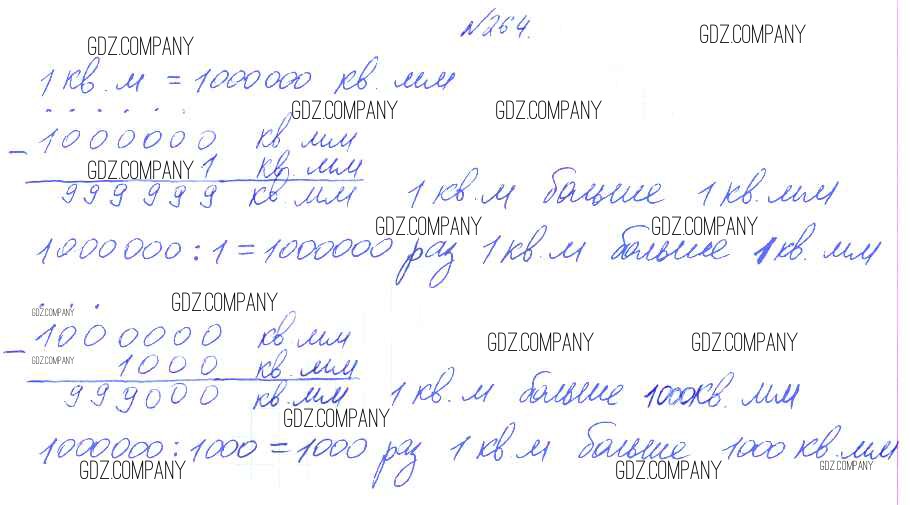 №264.
GDZ.COMPANY GDZ.COMPANY
1 кв. м = 1000000 кв. мм
GDZ.COMPANY GDZ.COMPANY
- 1000000 кв мм
GDZ.COMPANY 1 кв. мм
999999 кв. мм 1 кв. м больше 1 кв. мм
GDZ.COMPANY GDZ.COMPANY
1000000 : 1 = 1000000 раз 1 кв. м больше 1 кв. мм
GDZ.COMPANY GDZ.COMPANY
- 1000000 кв мм
GDZ.COMPANY GDZ.COMPANY
GDZ.COMPANY 1000 кв. мм
999000 кв. мм 1 кв. м больше 1000 кв. мм
GDZ.COMPANY
1000000 : 1000 = 1000 раз 1 кв. м больше 1000 кв. мм
GDZ.COMPANY GDZ.COMPANY GDZ.COMPANY